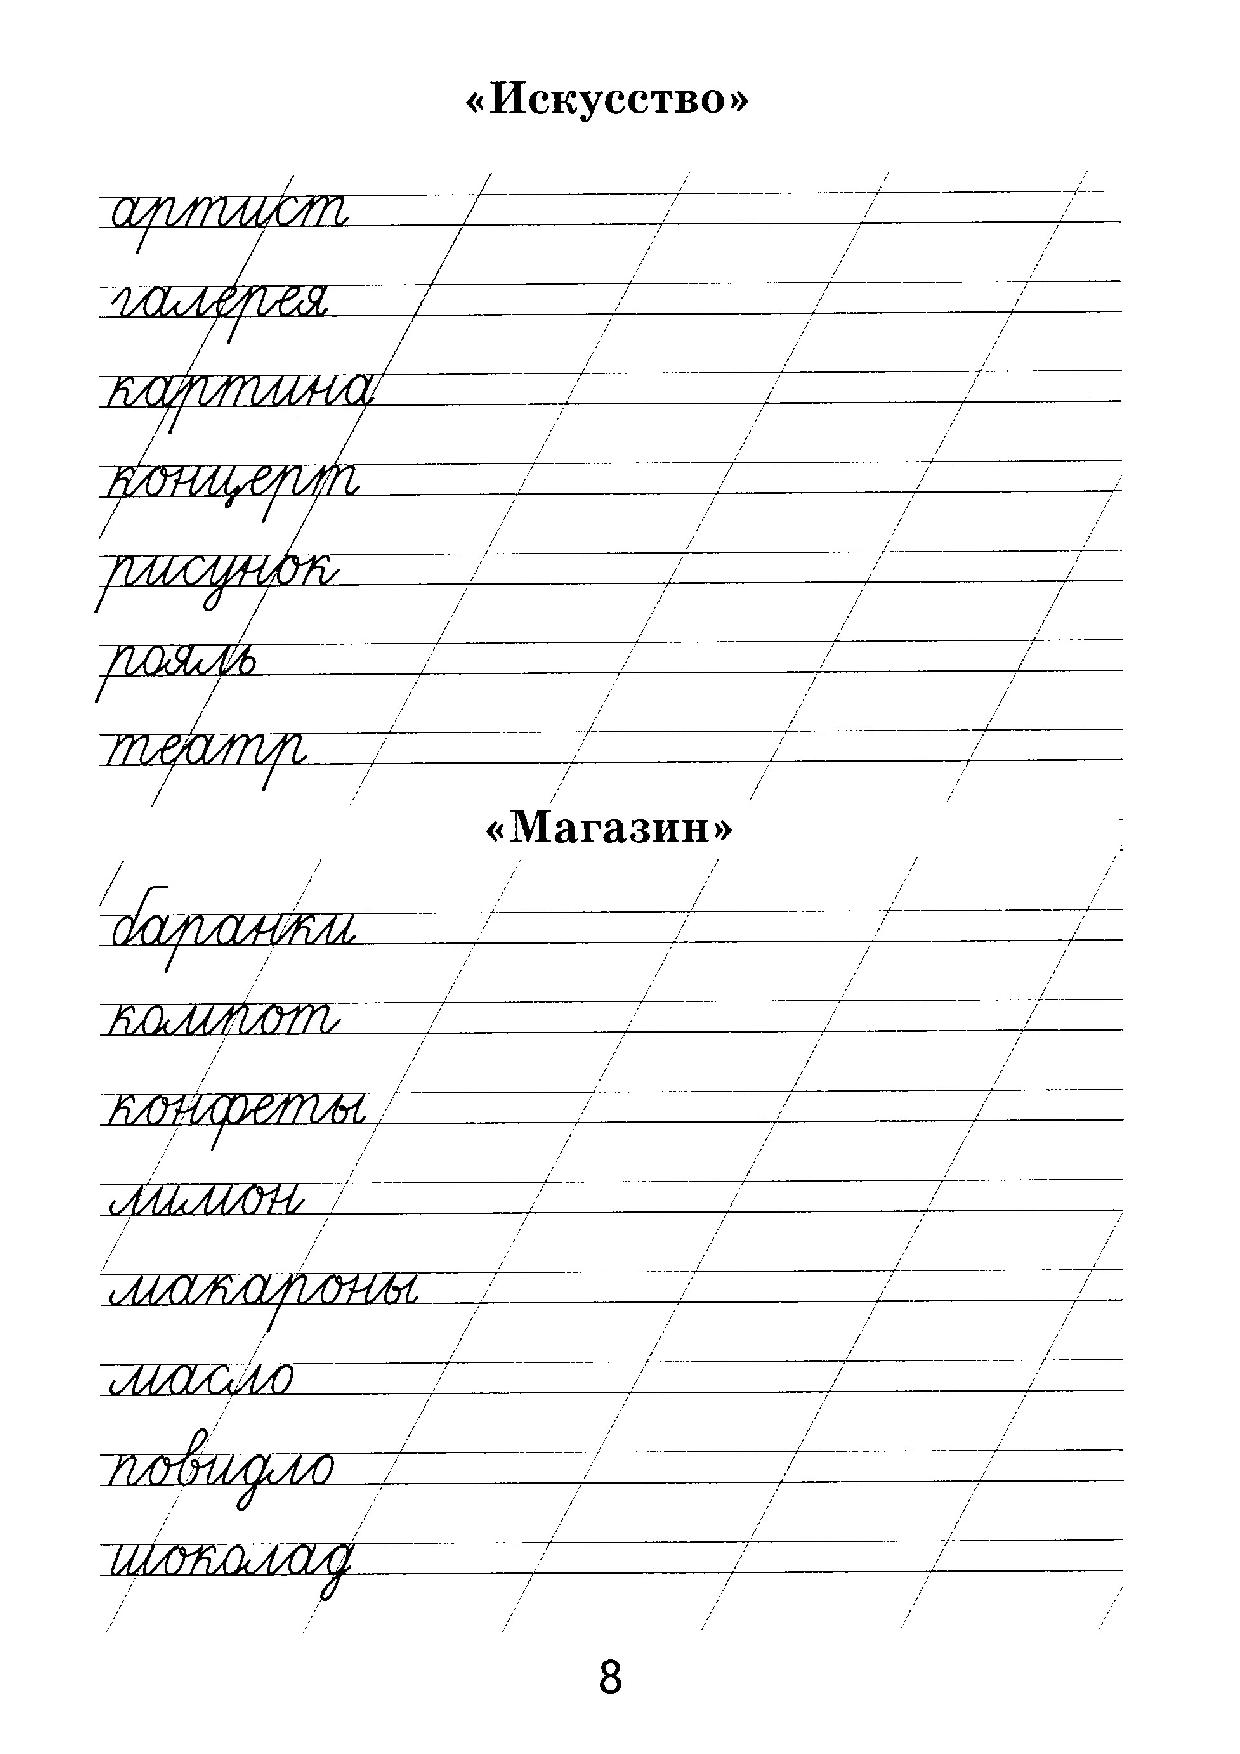 «Искусство»
артист
галерея
картина
концерт
рисунок
рояль
театр
«Магазин»
баранки
компот
конфеты
лимон
макароны
масло
повидло
шоколад
8